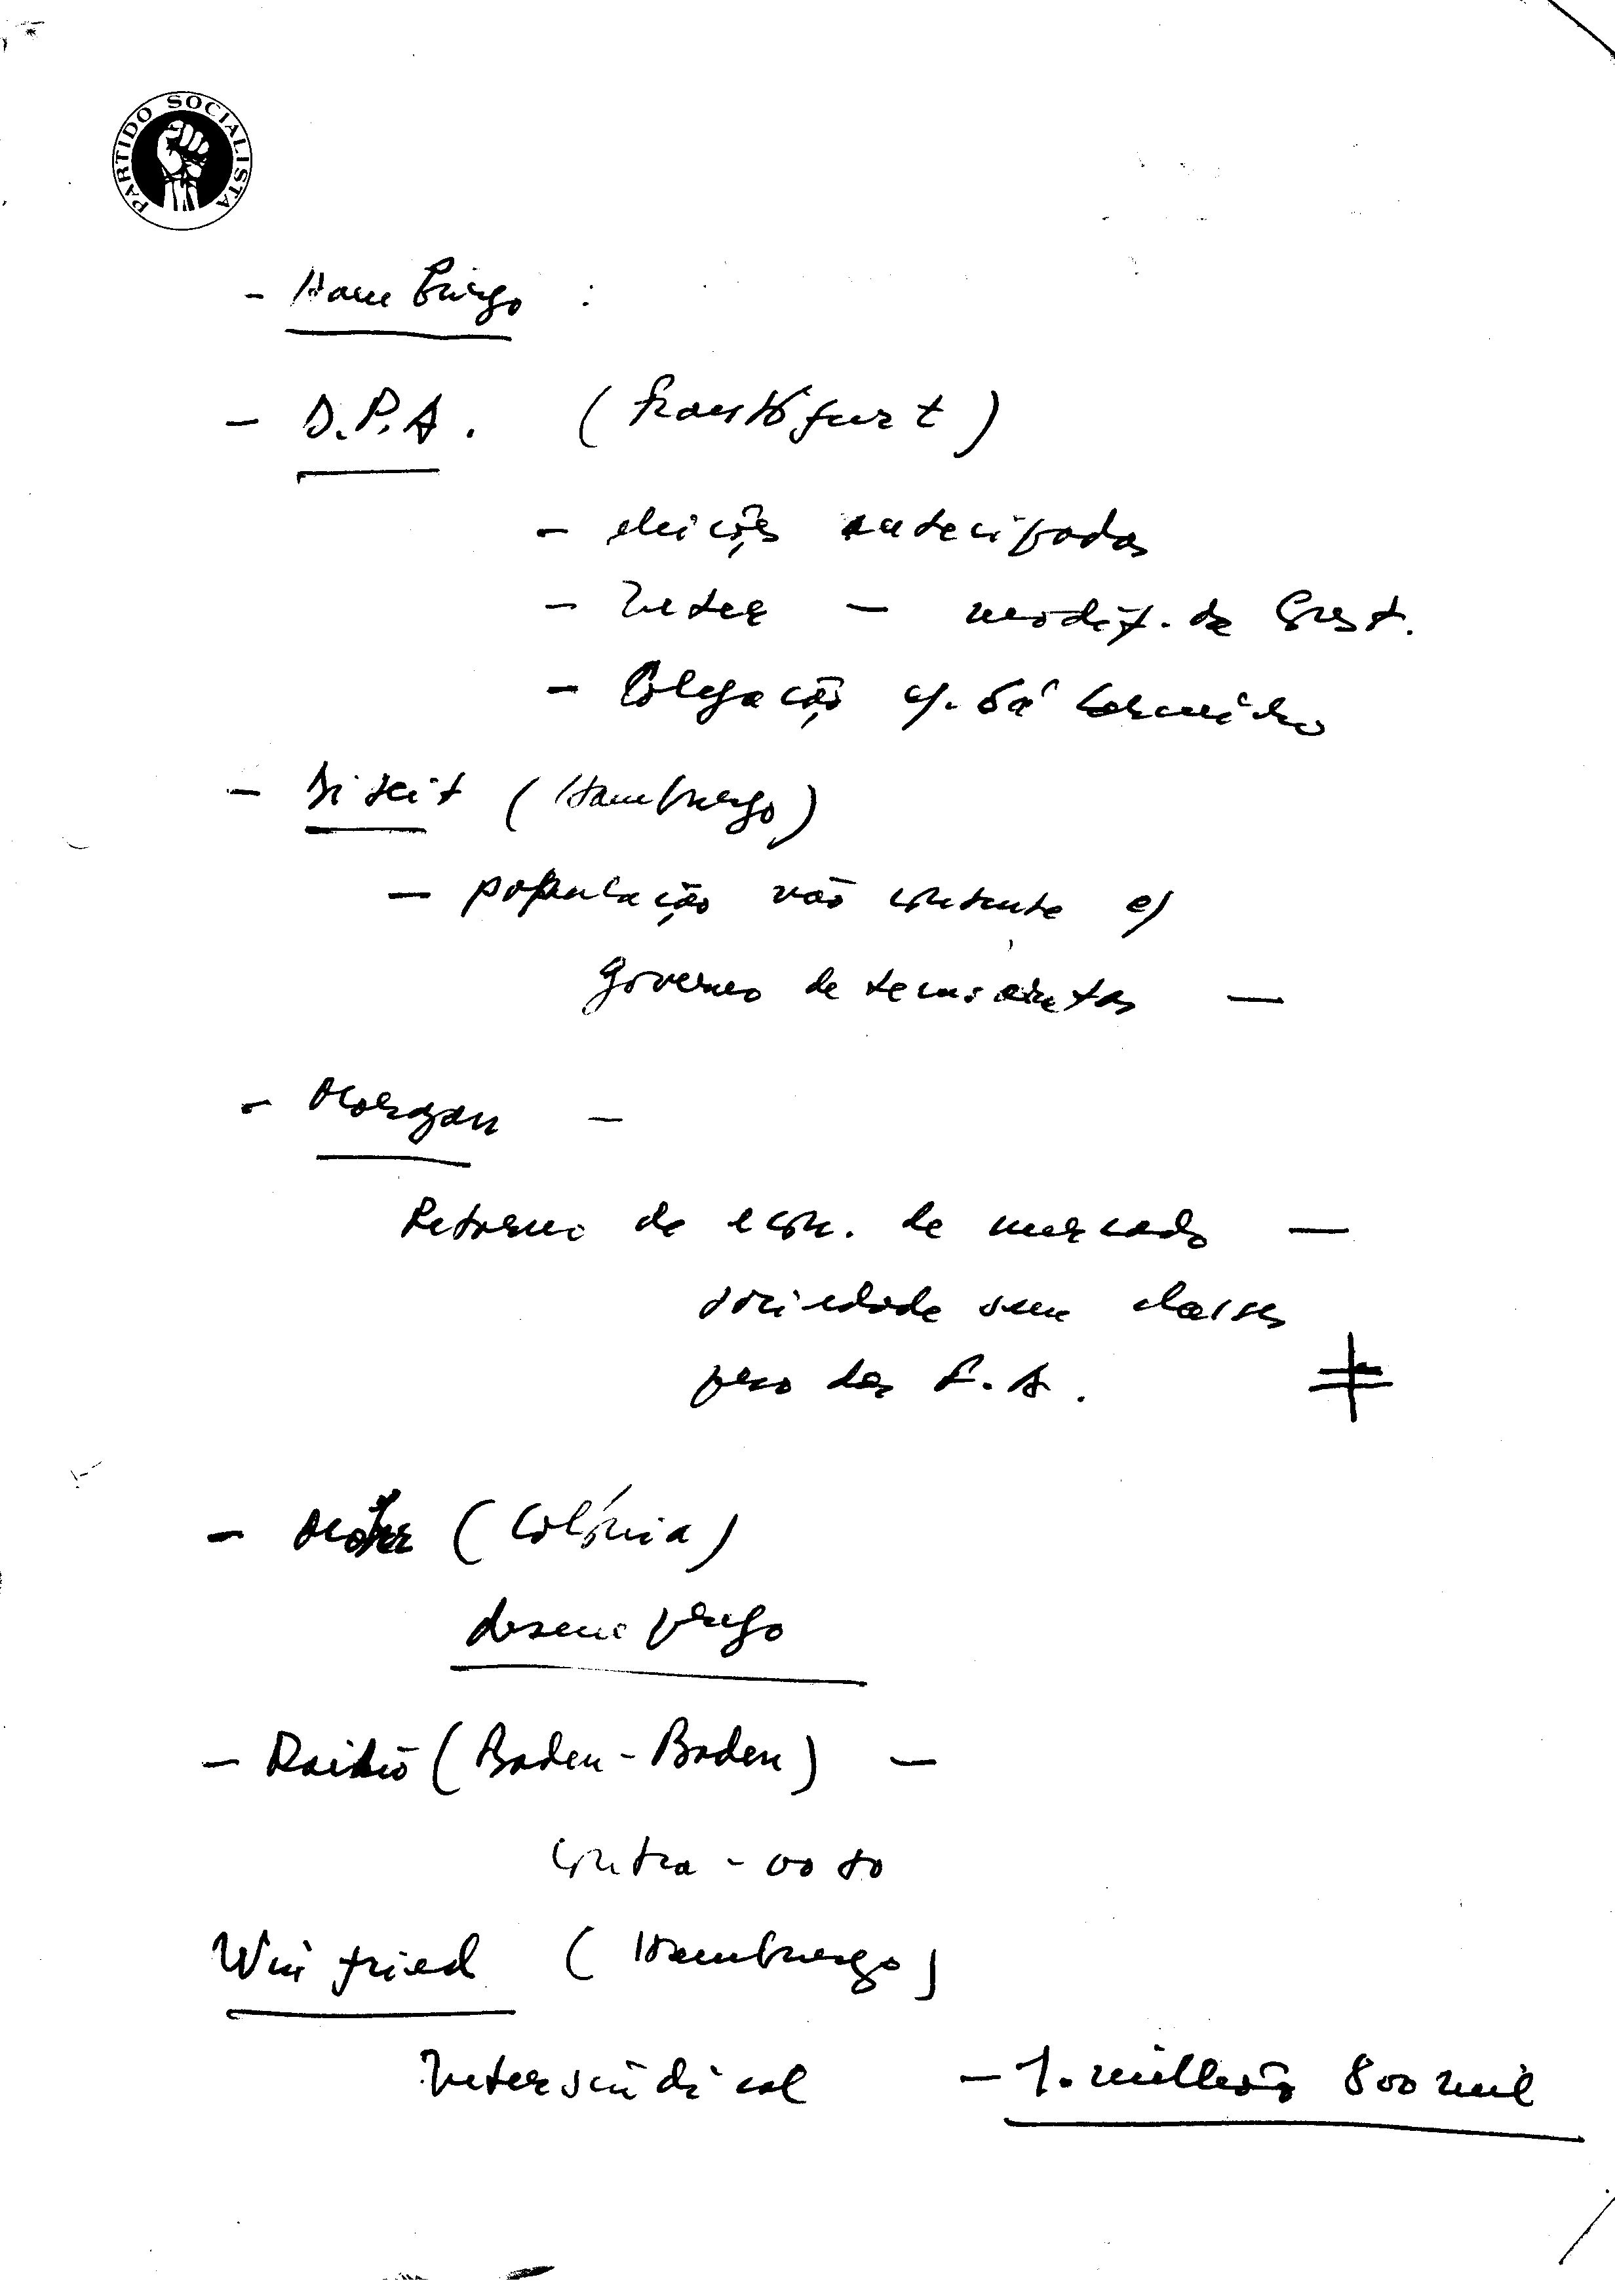 PARTIDO SOCIALISTA
- Hamburgo :
- D.P.A. (Frankfurt)
- eleições antecipadas
- Inter - modif. da Const.
- Coligação c/. Sá Carneiro
- (Hamburgo)
- população não contente c/
Governo de tecnocratas -
- Morgan -
Retorno da econ. de mercado -
sociedade sem classes
peso das F.A. ≠
- (Colónia)
desemprego
- Rádio (Baden-Baden) -
contra-voto
Winfried (Hamburgo)
Intersindical - 1. milhão 800 mil